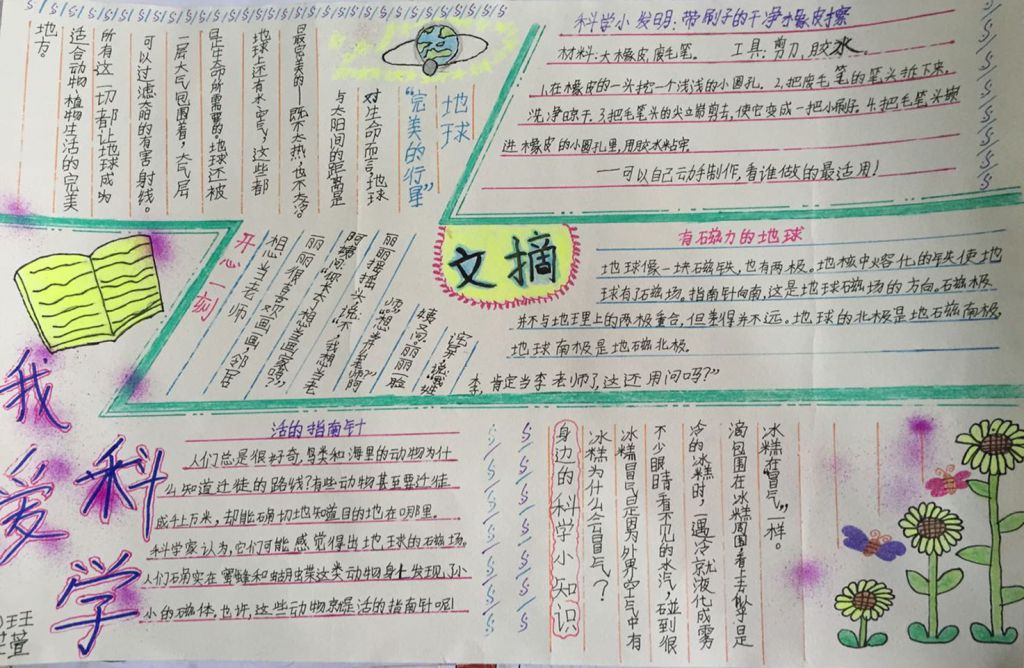 我爱科学
地球
“完美的行星”
对生命而言,地球
与太阳间的距离是
最完美的——既不太热,也不太冷。
地球上还有水、空气,这些都
是生命所需要的。地球还被
一层大气包围着,大气层
可以过滤太阳的有害射线。
所有这一切都让地球成为
适合动物、植物生活的完美
地方。
科学小发明:带刷子的干净橡皮擦
材料:大橡皮,废毛笔。 工具:剪刀,胶水。
1.在橡皮的一头挖一个浅浅的小圆孔。2.把废毛笔的笔头拆下来,
洗净晾干。3.把毛笔头的尖立崩剪去,使它变成一把小刷子。4.把毛笔头嵌
进橡皮的小圆孔里,用胶水粘牢。
——可以自己动手制作,看谁做的最适用!
开心一刻
想当老师
丽丽很喜欢画画,邻居
阿姨问:“你长大了想当画家吗?”
丽丽摇摇头说:“不,我想当老
师。”“想当什么老师?”阿
姨又问。丽丽一脸
李,肯定当李老师了,这还用问吗?”
文摘
有磁力的地球
地球像一块磁铁,也有两极。地核中熔化的铁使地
球有了磁场。指南针向南,这是地球磁场的方向。磁极
并不与地理上的两极重合,但差得并不远。地球的北极是地磁南极,
地球南极是地磁北极。
活的指南针
人们总是很好奇,鸟类和海里的动物为什
么知道迁徙的路线?有些动物甚至要迁徙
成千上万米,却能确切地知道目的地在哪里。
科学家认为,它们可能感觉得出地球的磁场。
人们确实在蜜蜂和蝴蝶这类动物身上发现了小
小的磁体,也许,这些动物就是活的指南针呢!
身边的科学小知识
冰糕为什么会冒气?
冰糕冒气是因为外界空气中有
不少眼睛看不见的水汽,碰到很
冷的冰糕时,一遇冷就液化成雾
滴包围在冰糕周围,看上去似乎是
“冰糕在冒气”一样。